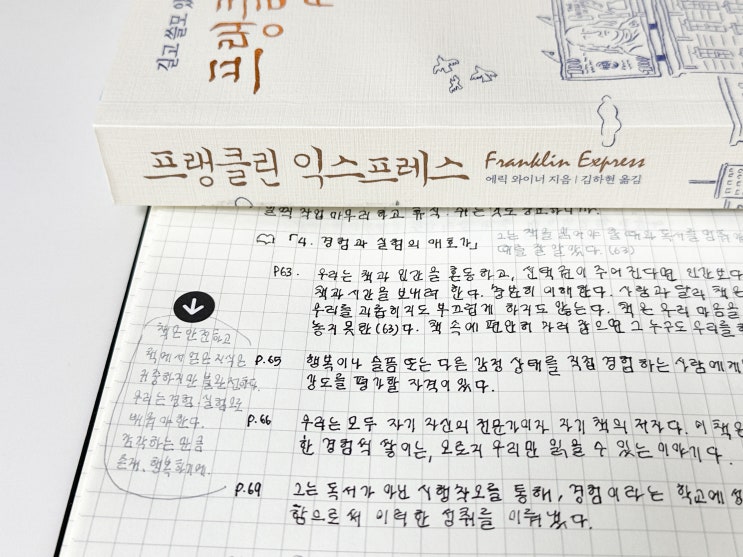 길고 쓸모 있
프랭클
프랭클린 익스프레스 Franklin Express
에릭 와이너 지음 | 김하현 옮김
「4. 경험과 실험의 애호가」
때를 잘 알았다. (63)
P63. 우리는 책과 인간을 혼동하고, 선택권이 주어진다면 인간보다
책과 시간을 보내려 한다. 충분히 이해한다. 사람과 달리 책은
우리를 괴롭히지도 부끄럽게 하지도 않는다. 책은 우리 마음을
놓지 못한 (63)다. 책 속에 편안히 자리 잡으면 그 누구도 우리를
책은 안전하고
책에서 얻은 지식은
귀중하지만 불완전하다.
우리는 경험·실험으로
배워야 한다.
감각하는 만큼
존재, 행복하기에.
P.65 행복이나 슬픔 또는 다른 감정 상태를 직접 경험하는 사람에게
강도를 평가할 자격이 있다.
P.66 우리는 모두 자기 자신의 전문가이자 자기 책의 저자다. 이 책은
한 경험씩 쌓이는, 오로지 우리만 읽을 수 있는 이야기다.
P.69 그는 독서가 아닌 시행착오를 통해, 경험이라는 학교에
함으로써 이러한 성취를 이뤄냈다.